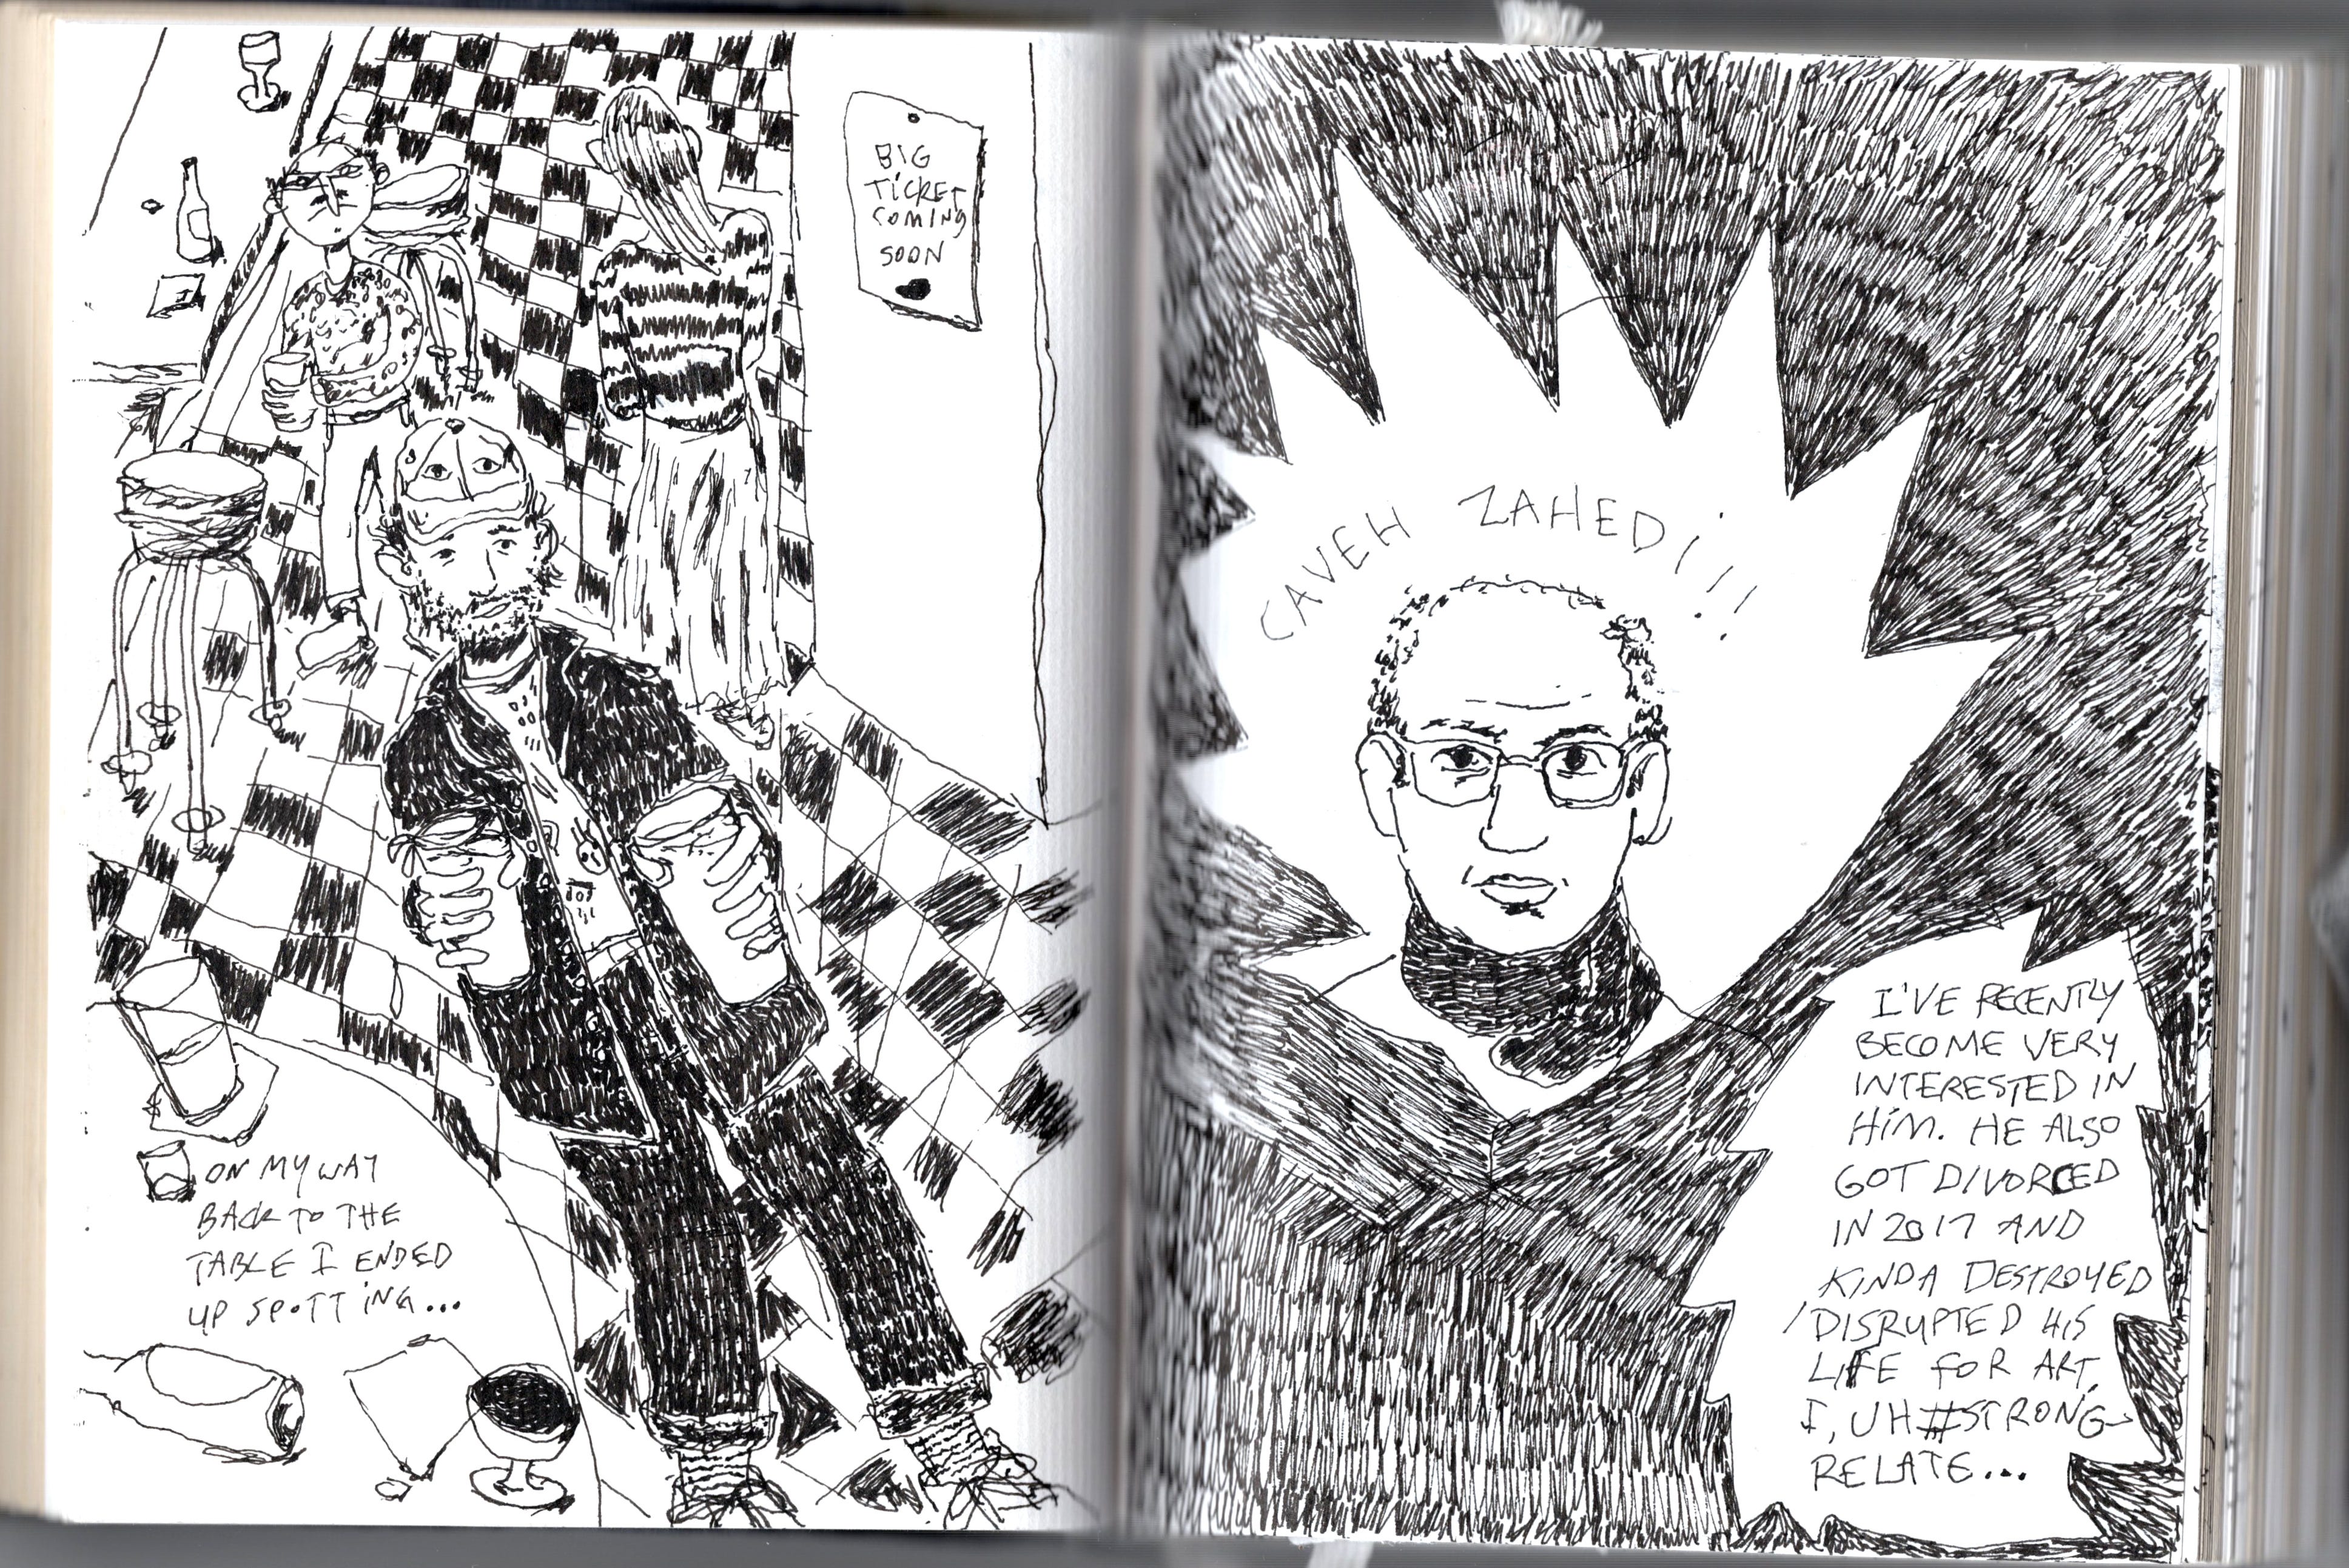 BIG
TICKET
COMING
SOON
ON MY WAY
BACK TO THE
TABLE I ENDED
UP SPOTTING...
CAVEH ZAHEDI!!
I'VE RECENTLY
BECOME VERY
INTERESTED IN
HIM. HE ALSO
GOT DIVORCED
IN 2017 AND
KINDA DESTROYED
/DISRUPTED HIS
LIFE FOR ART,
I, UH #STRONG-
RELATE...